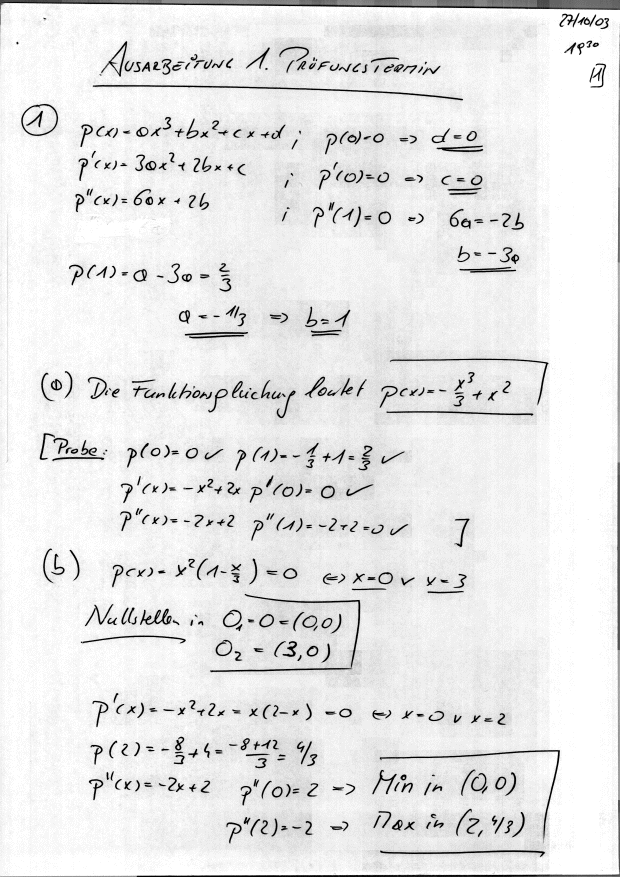 27/10/03
19³⁰
[1]
AUSARBEITUNG 1. PRÜFUNGSTERMIN
① p(x)=ax³+bx²+cx+d ; p(0)=0 => d=0
p'(x)=3ax²+2bx+c ; p'(0)=0 => c=0
p''(x)=6ax+2b ; p''(1)=0 => 6a=-2b
b=-3a
p(1)=a-3a=2/3
a=-1/3 => b=1
(a) Die Funktionsgleichung lautet p(x)=-x³/3+x²
[Probe: p(0)=0✓ p(1)=-1/3+1=2/3 ✓
p'(x)=-x²+2x p'(0)=0 ✓
p''(x)=-2x+2 p''(1)=-2+2=0✓ ]
(b) p(x)=x²(1-x/3)=0 <=> x=0 ∨ x=3
Nullstellen in O₁=O=(0,0)
O₂=(3,0)
p'(x)=-x²+2x=x(2-x)=0 <=> x=0 ∨ x=2
p(2)=-8/3+4=(-8+12)/3=4/3
p''(x)=-2x+2 p''(0)=2 => Min in (0,0)
p''(2)=-2 => Max in (2,4/3)